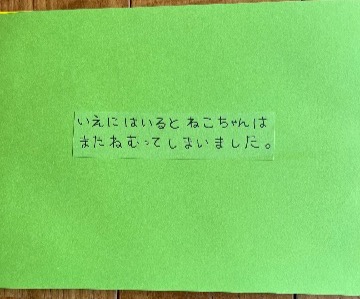 いえにはいると ねこちゃんは
またねむってしまいました。